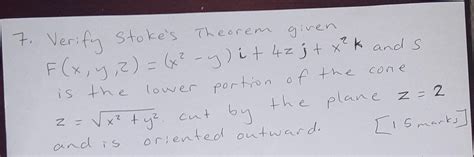 7. Verify Stoke's Theorem given
F(x, y, z) = (x² - y) i + 4z j + x² k and S
is the lower portion of the cone
z = √x² + y², cut by the plane z = 2
and is oriented outward. [15 marks]